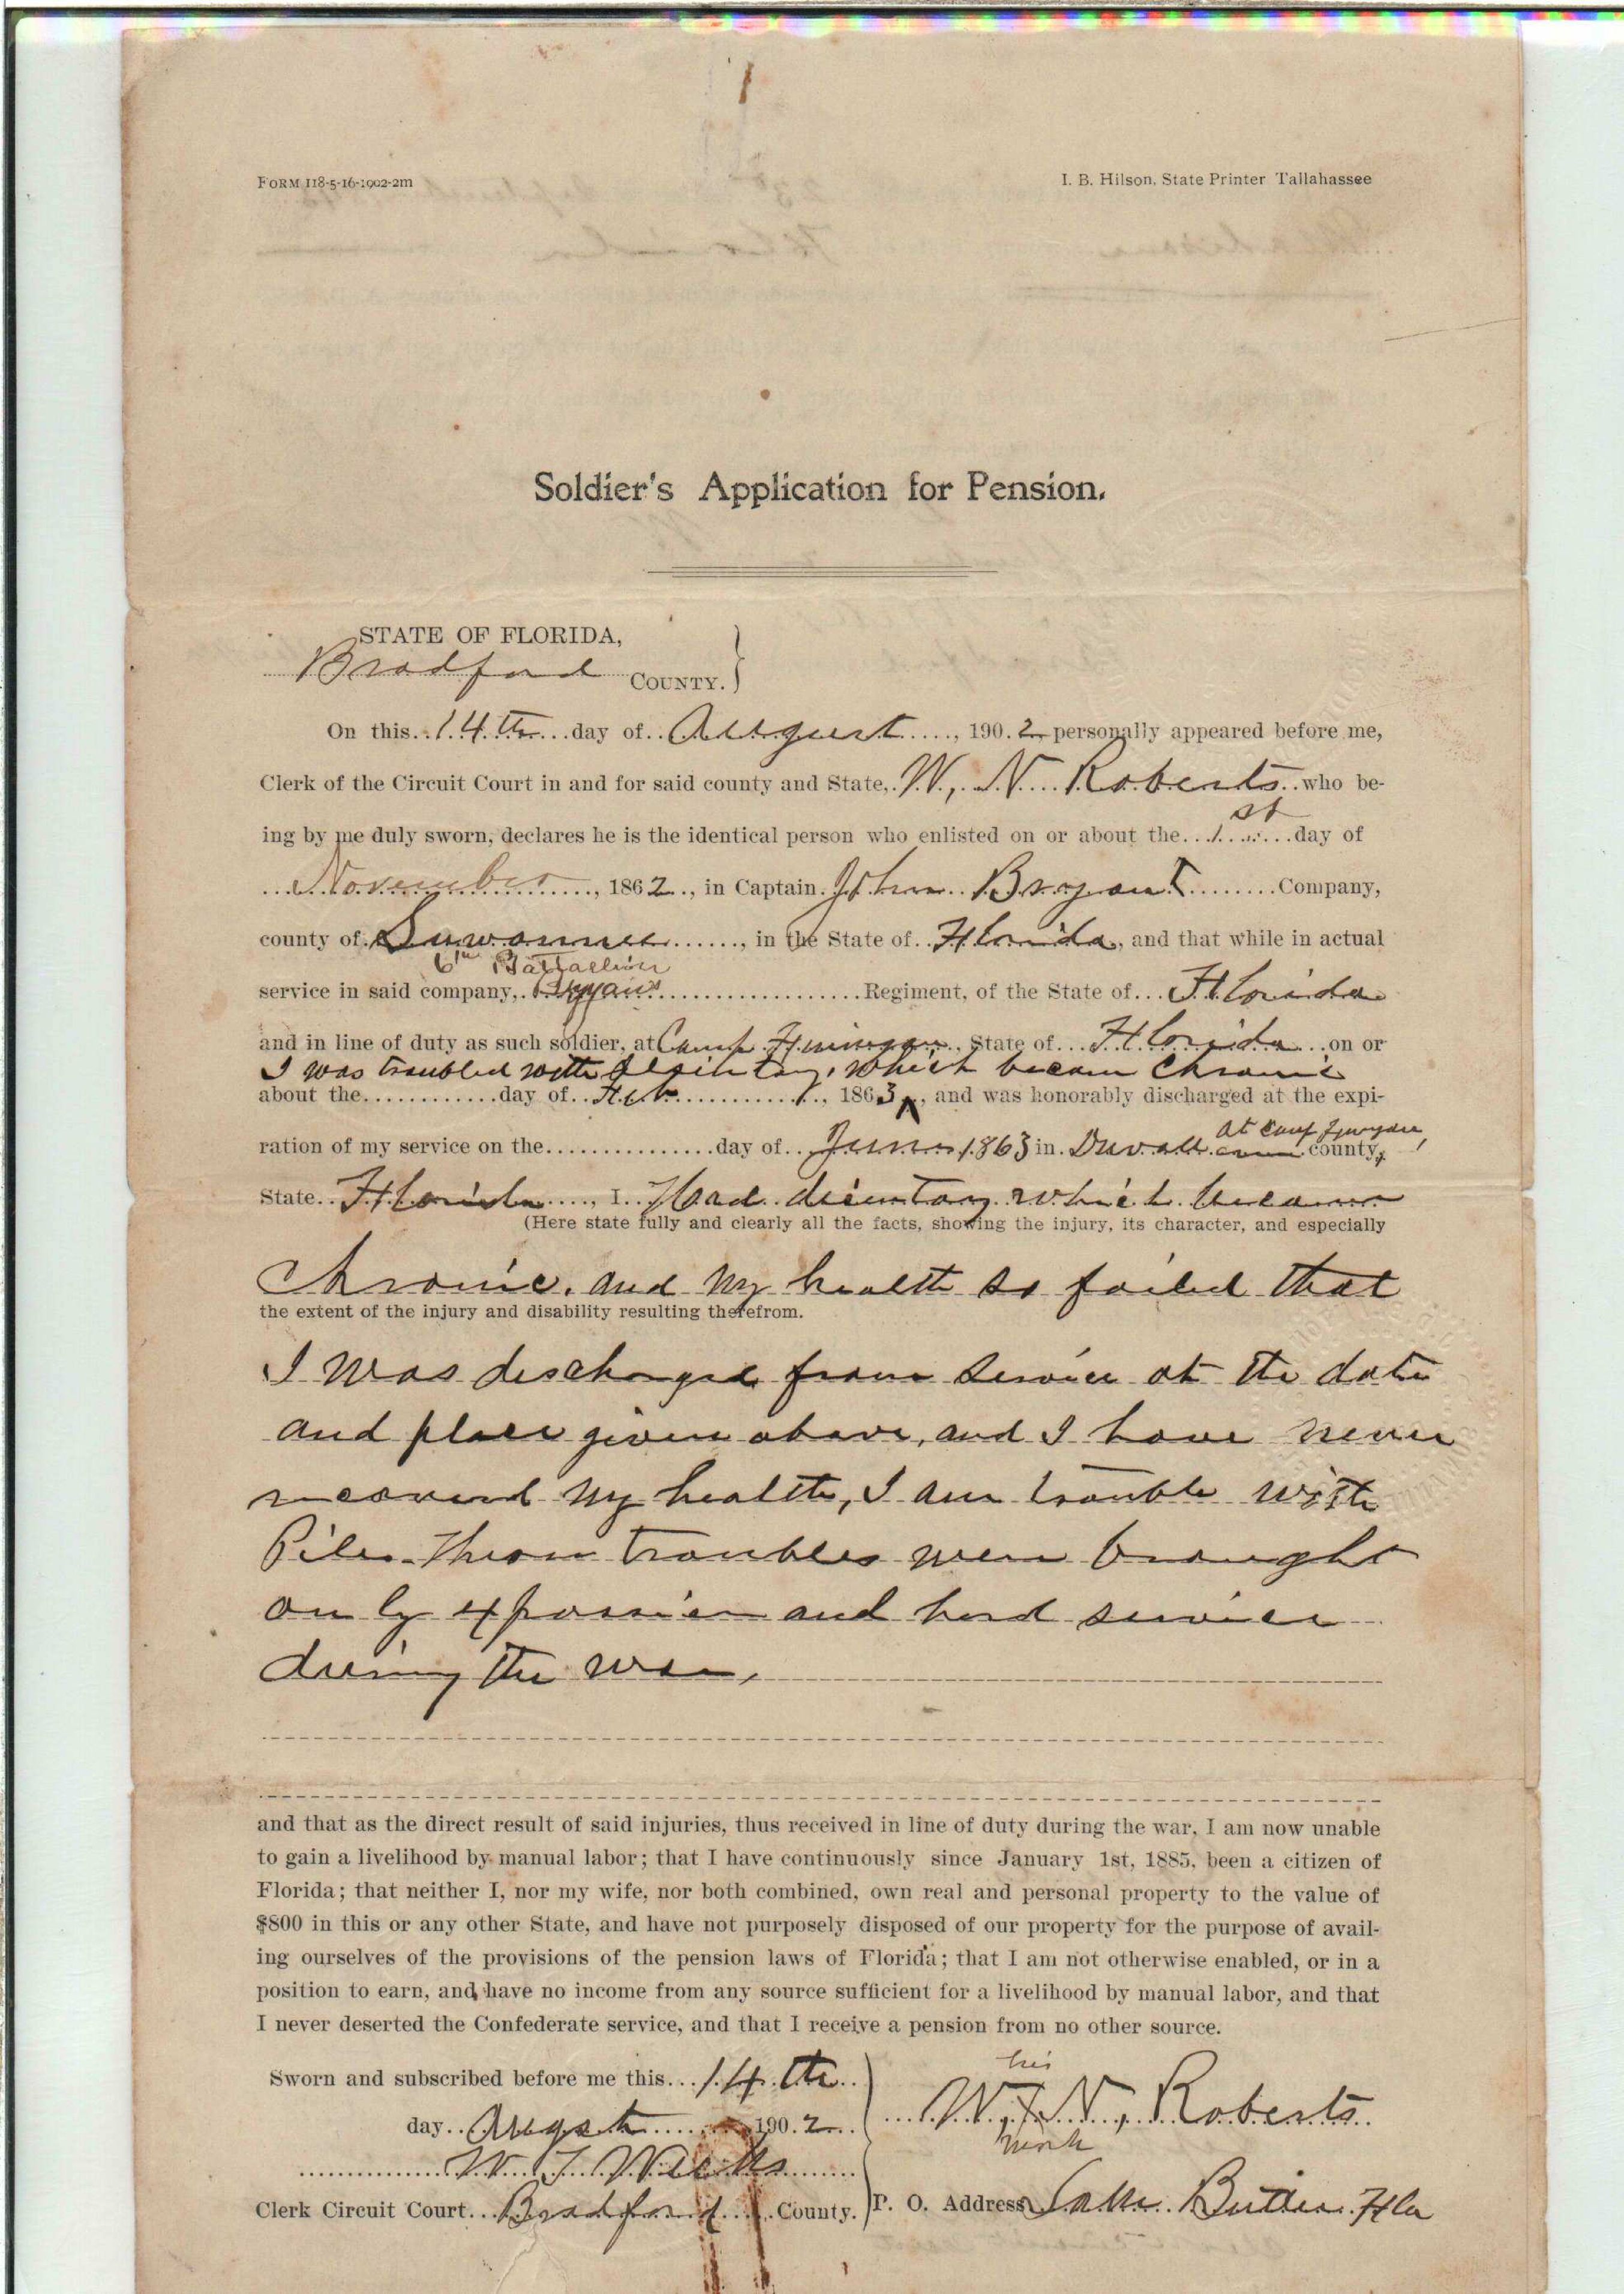 FORM 118-5-16-1902-2m
I. B. Hilson, State Printer Tallahassee
Soldier's Application for Pension.
STATE OF FLORIDA,
Bradford COUNTY.
On this 14th day of August, 1902 personally appeared before me,
Clerk of the Circuit Court in and for said county and State, W, N Roberts who be-
ing by me duly sworn, declares he is the identical person who enlisted on or about the 1st day of
November, 1862, in Captain John Bryant Company,
county of Suwannee, in the State of Florida, and that while in actual
6th Battallion
service in said company, Regiment, of the State of Florida
and in line of duty as such soldier, at Camp State of Florida on or
I was troubled with which became Chronic
about the day of Feb, 1863, and was honorably discharged at the expi-
ration of my service on the day of June 1863 in Duvall county, at Camp
State Florida, I Had which became
(Here state fully and clearly all the facts, showing the injury, its character, and especially
Chronic, and my health so failed that
the extent of the injury and disability resulting therefrom.
I was discharged from service at the date
and place given above, and I have never
recovered my health, I am trouble with
Piles. These troubles were brought
on by and hard service
during the war,
and that as the direct result of said injuries, thus received in line of duty during the war, I am now unable
to gain a livelihood by manual labor; that I have continuously since January 1st, 1885, been a citizen of
Florida; that neither I, nor my wife, nor both combined, own real and personal property to the value of
$800 in this or any other State, and have not purposely disposed of our property for the purpose of avail-
ing ourselves of the provisions of the pension laws of Florida; that I am not otherwise enabled, or in a
position to earn, and have no income from any source sufficient for a livelihood by manual labor, and that
I never deserted the Confederate service, and that I receive a pension from no other source.
Sworn and subscribed before me this 14th
day August 1902
his
W, X N, Roberts
mark
W. J.
Clerk Circuit Court Bradford County.
P. O. Address Lake Butler Fla